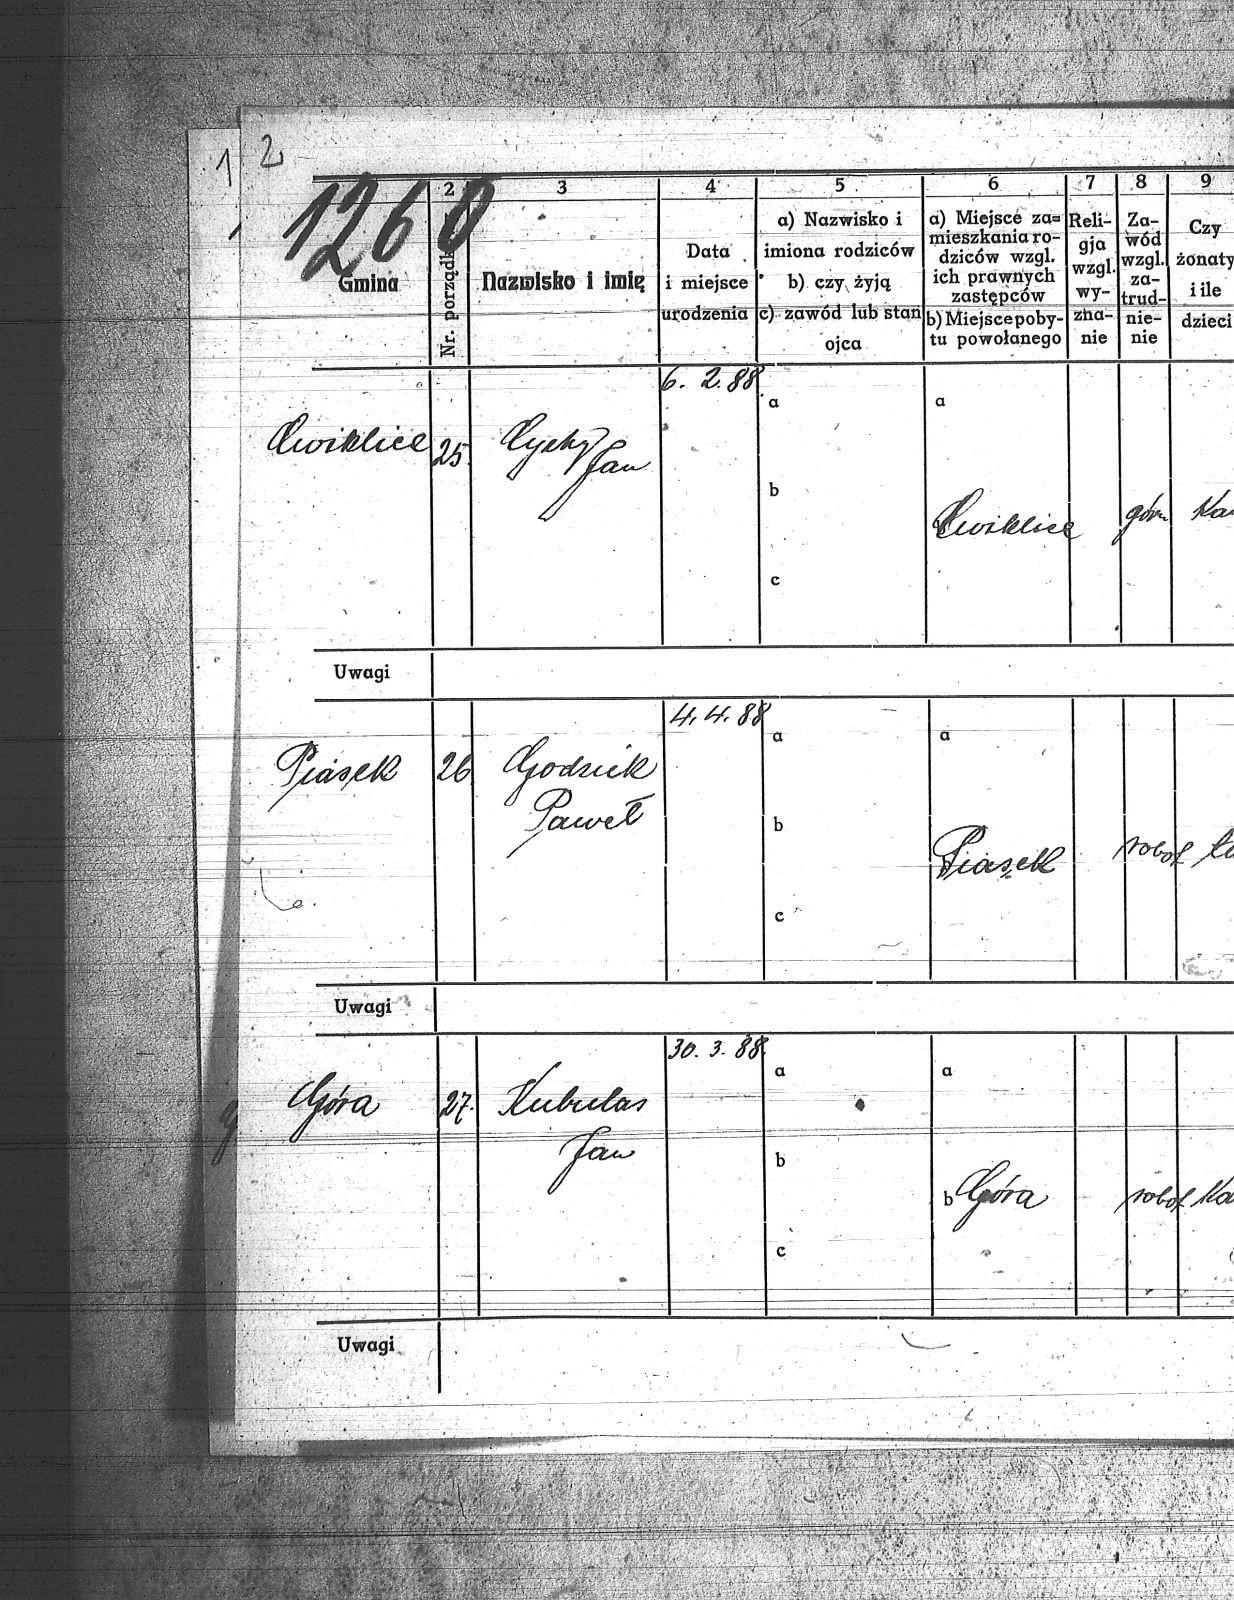 1 2
1260
2 3 4 5 6 7 8 9
Gmina
Nr. porządk
Nazwisko i imię
Data
i miejsce
urodzenia
a) Nazwisko i
imiona rodziców
b) czy żyją
c) zawód lub stan
ojca
a) Miejsce za=
mieszkania ro-
dziców wzgl.
ich prawnych
zastępców
b) Miejsce poby-
tu powołanego
Reli-
gja
wzgl.
wy-
zna-
nie
Za-
wód
wzgl.
za-
trud-
nie-
nie
Czy
żonaty
i ile
dzieci
6. 2. 88
a a
Cwiklice 25.
Jan
b
Cwiklice górn Ka
c
Uwagi
4. 4. 88
a a
Piasek 26 Godziek
Paweł
b
Piasek robot ka
c
Uwagi
30. 3. 88.
a a
Góra 27. Kubulas
Jan
b
b Góra robot Ka
c
Uwagi